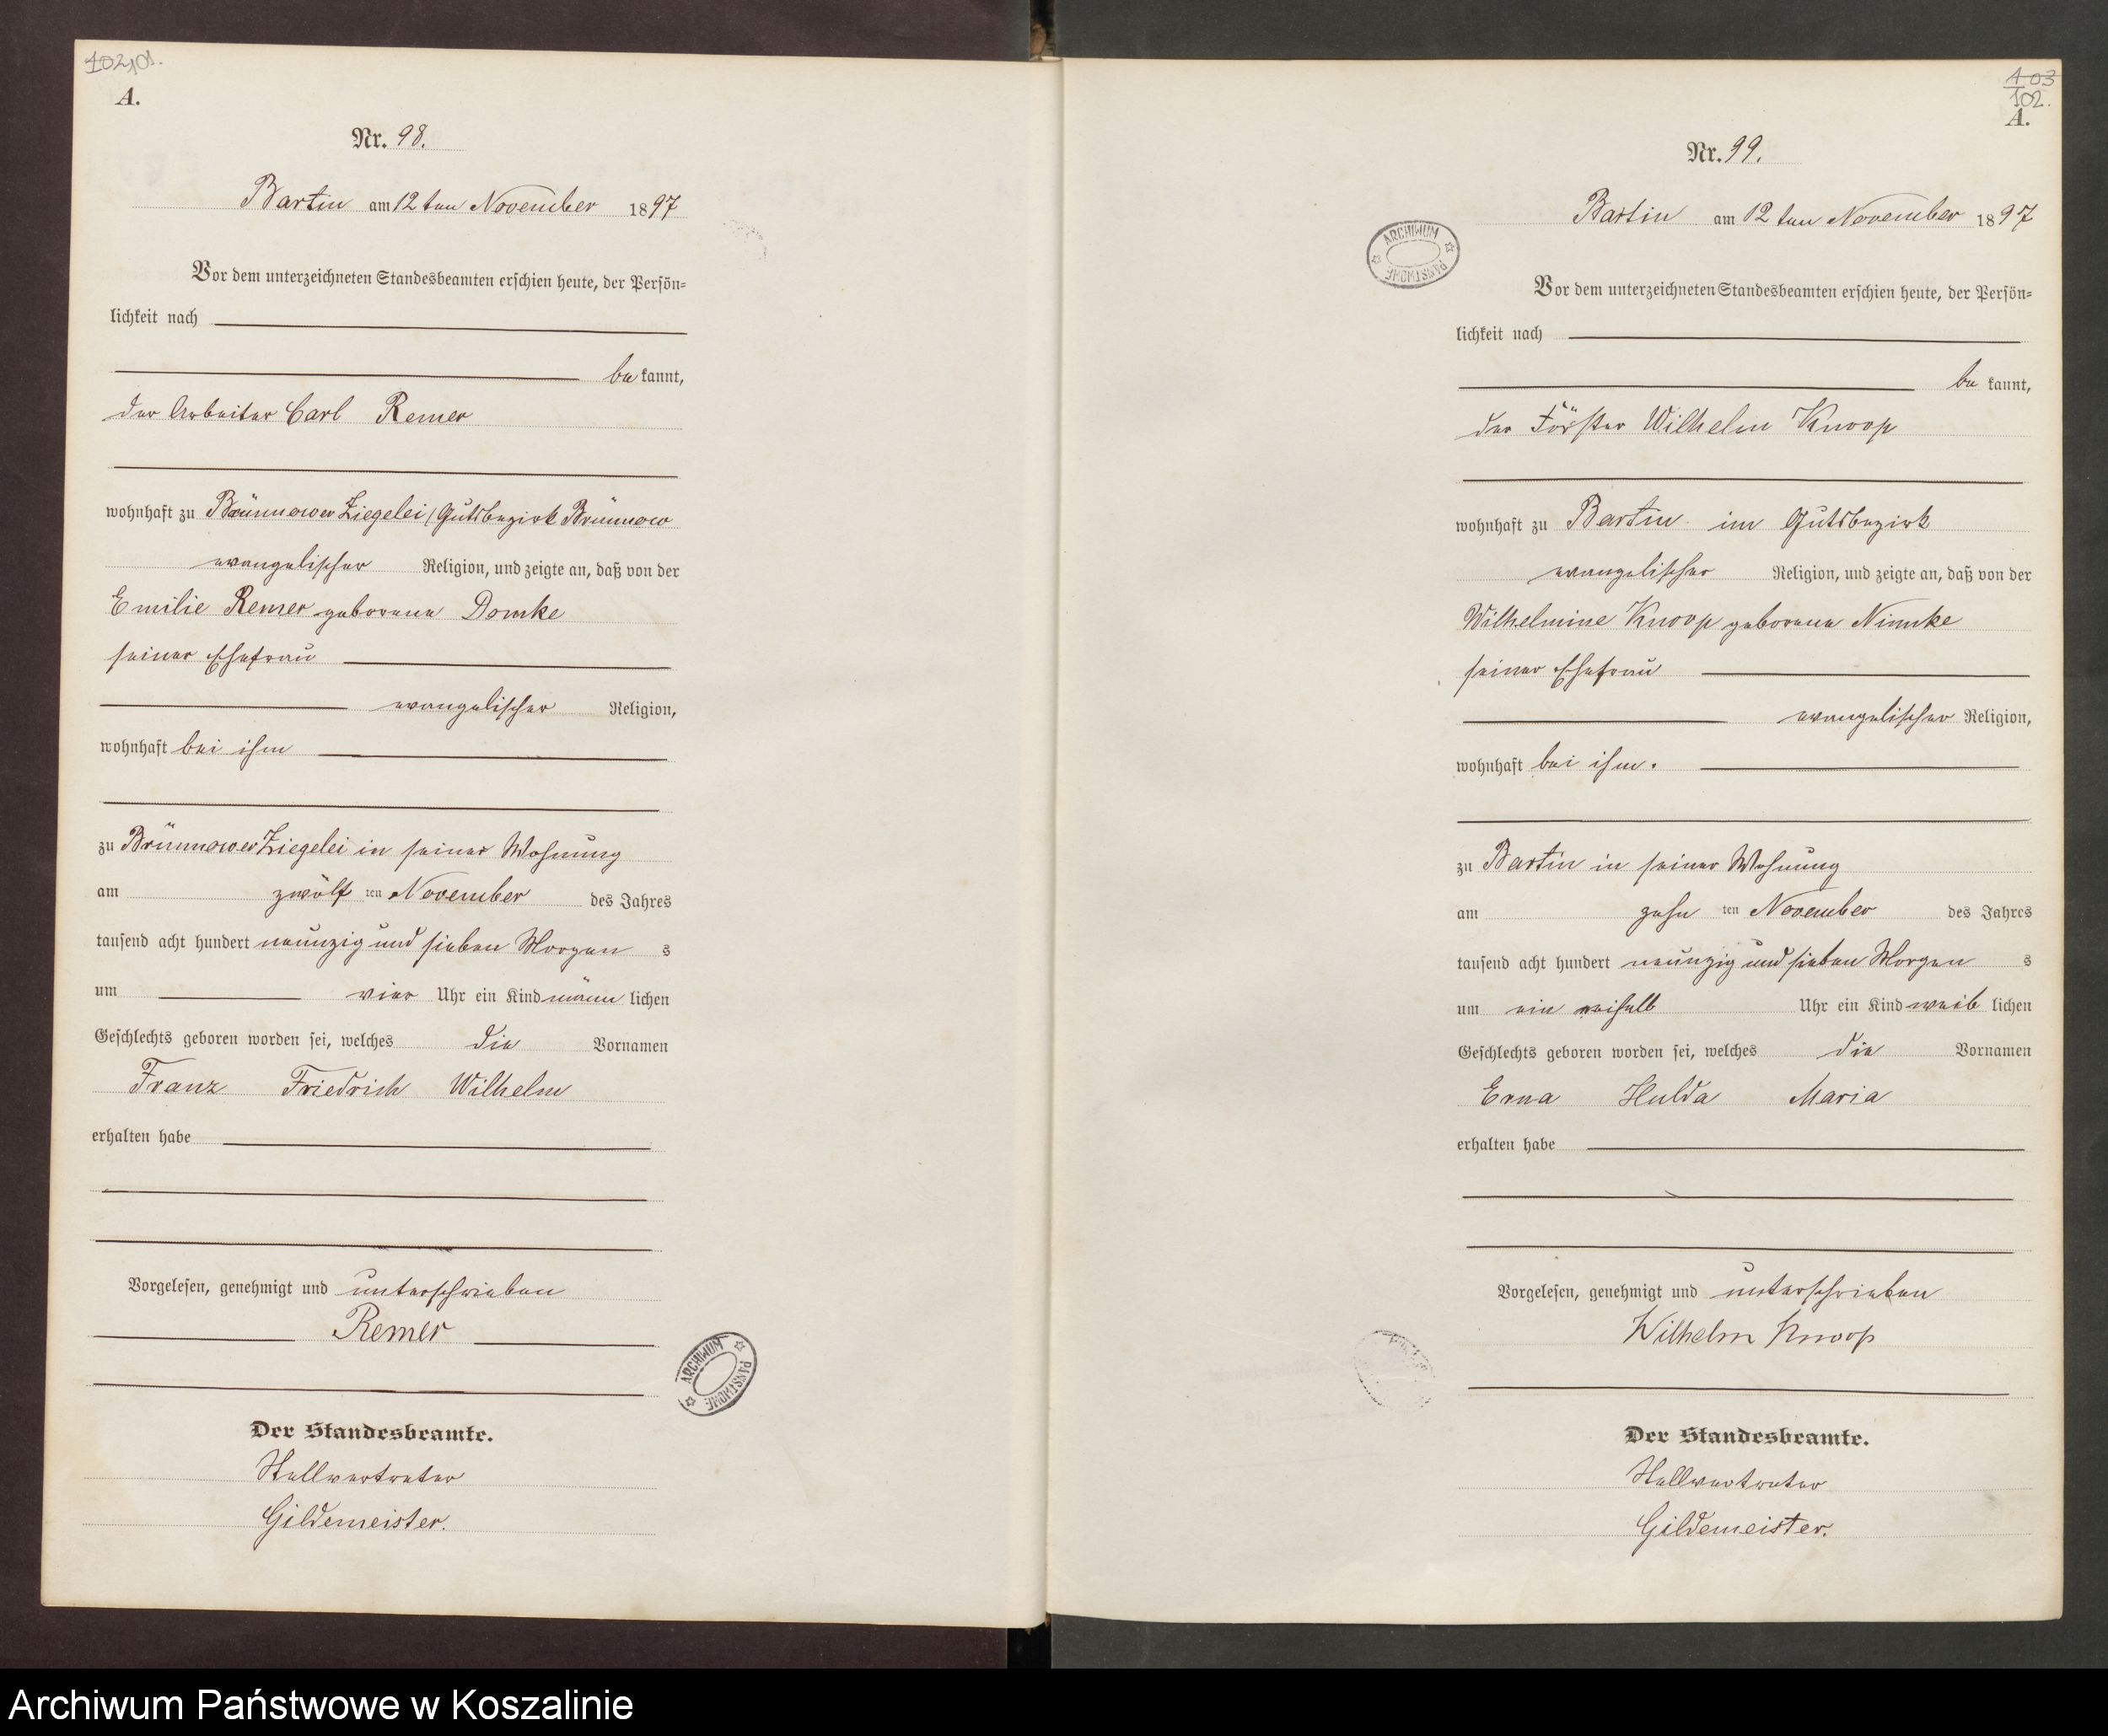 102 101.
A.
Nr. 98.
Bartin am 12ten November 1897
Vor dem unterzeichneten Standesbeamten erschien heute, der Persön-
lichkeit nach
bekannt,
der Arbeiter Carl Remer
wohnhaft zu Brünnower Ziegelei / Gutsbezirk Brünnow
evangelischer Religion, und zeigte an, daß von der
Emilie Remer geborene Domke
seiner Ehefrau
evangelischer Religion,
wohnhaft bei ihm
zu Brünnower Ziegelei in seiner Wohnung
am zwölf ten November des Jahres
tausend acht hundert neunzig und sieben Morgen s
um vier Uhr ein Kind männlichen
Geschlechts geboren worden sei, welches die Vornamen
Franz Friedrich Wilhelm
erhalten habe
Vorgelesen, genehmigt und unterschrieben
Remer
ARCHIWUM PAŃSTWOWE
Der Standesbeamte.
Stellvertreter
Gildemeister.
103
102.
A.
Nr. 99.
ARCHIWUM PAŃSTWOWE
Bartin am 12ten November 1897
Vor dem unterzeichneten Standesbeamten erschien heute, der Persön-
lichkeit nach
bekannt,
der Förster Wilhelm Knoop
wohnhaft zu Bartin im Gutsbezirk
evangelischer Religion, und zeigte an, daß von der
Wilhelmine Knoop geborene Nimke
seiner Ehefrau
evangelischer Religion,
wohnhaft bei ihm.
zu Bartin in seiner Wohnung
am zehn ten November des Jahres
tausend acht hundert neunzig und sieben Morgen s
um ein Uhr ein Kind weiblichen
Geschlechts geboren worden sei, welches die Vornamen
Erna Hulda Maria
erhalten habe
Vorgelesen, genehmigt und unterschrieben
Wilhelm Knoop
Der Standesbeamte.
Stellvertreter
Gildemeister.
Archiwum Państwowe w Koszalinie